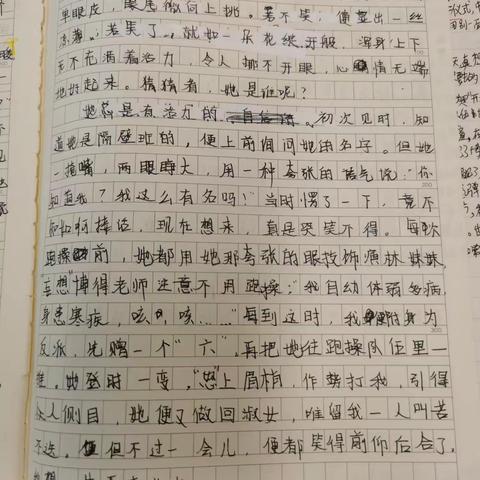 单眼皮，眼尾微向上挑。若不笑，便显出一丝
凉薄。若笑了，就如一朵花绽开般，浑身上下
无不充满着活力，令人挪不开眼，心情无端
地好起来。猜猜看，她是谁呢？
她是有活力的、自信的。初次见时，知
道她是隔壁班的，便上前询问她的名字。但她
一捂嘴，两眼睁大，用一种夸张的语气说：“你
知道我？我这么有名吗！”当时愣了一下，竟不
知如何接话，现在想来，真是哭笑不得。每次
跑操前，她都用她那夸张的眼技饰演林妹妹，
“妄想”博得老师注意不用跑操：“我自幼体弱多病，
身患寒疾，咳，咳……”每到这时，我便附身为
反派，先赠一个“六”，再把她往跑操队伍里一
推。她登时一变，“怒”上眉梢，作势打我，引得
众人侧目，她便又做回淑女，唯留我一人叫苦
不迭。但不过一会儿，便都笑得前仰后合了。